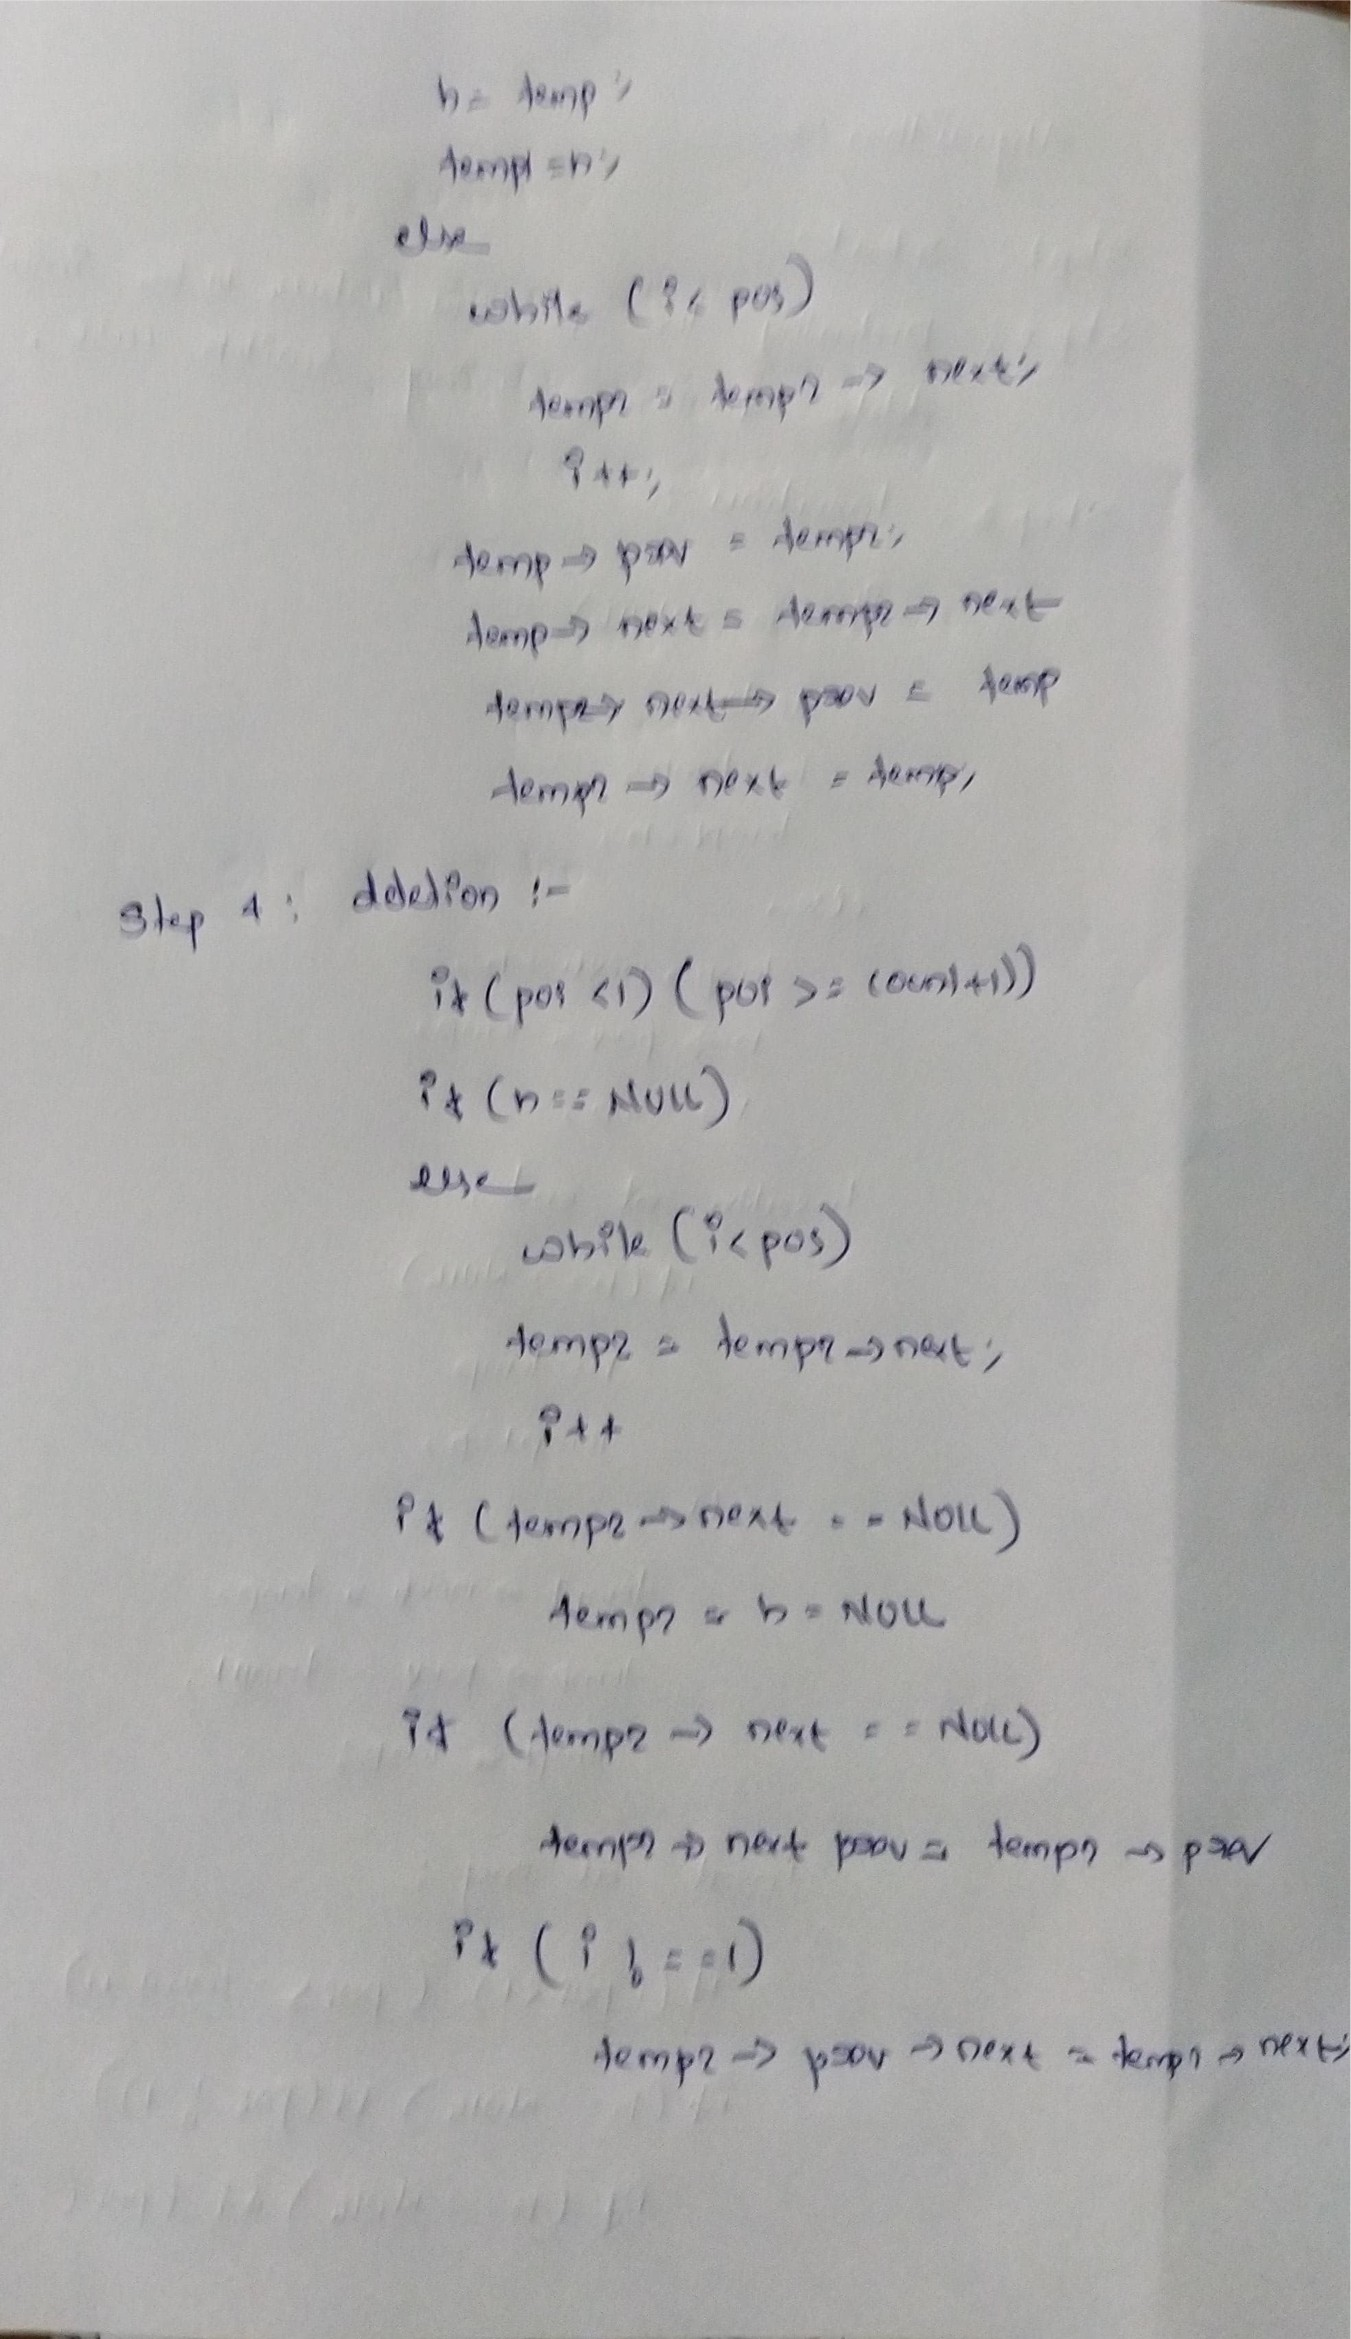 h = temp;
temp1 = h;
else
while (i < pos)
temp2 = temp2 → next;
i++;
temp → prev = temp2;
temp → next = temp2 → next
temp2 → next → prev = temp
temp2 → next = temp;
Step 4 : deletion :-
if (pos < 1) (pos >= count+1))
if (h == NULL)
else
while (i < pos)
temp2 = temp2 → next;
i++
if (temp2 → next == NULL)
temp2 = h = NULL
if (temp2 → next == NULL)
temp2 → next prev = temp2 → prev
if (i ! = = 1)
temp2 → prev → next = temp2 → next;